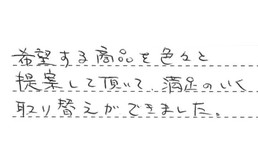 希望する商品を色々と
提案して頂いて、満足のいく
取り替えができました。